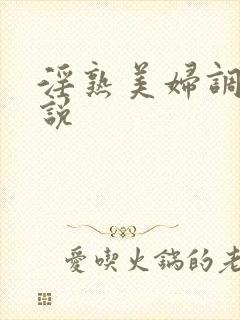 淫熟美婦調
說
愛喫火鍋的老